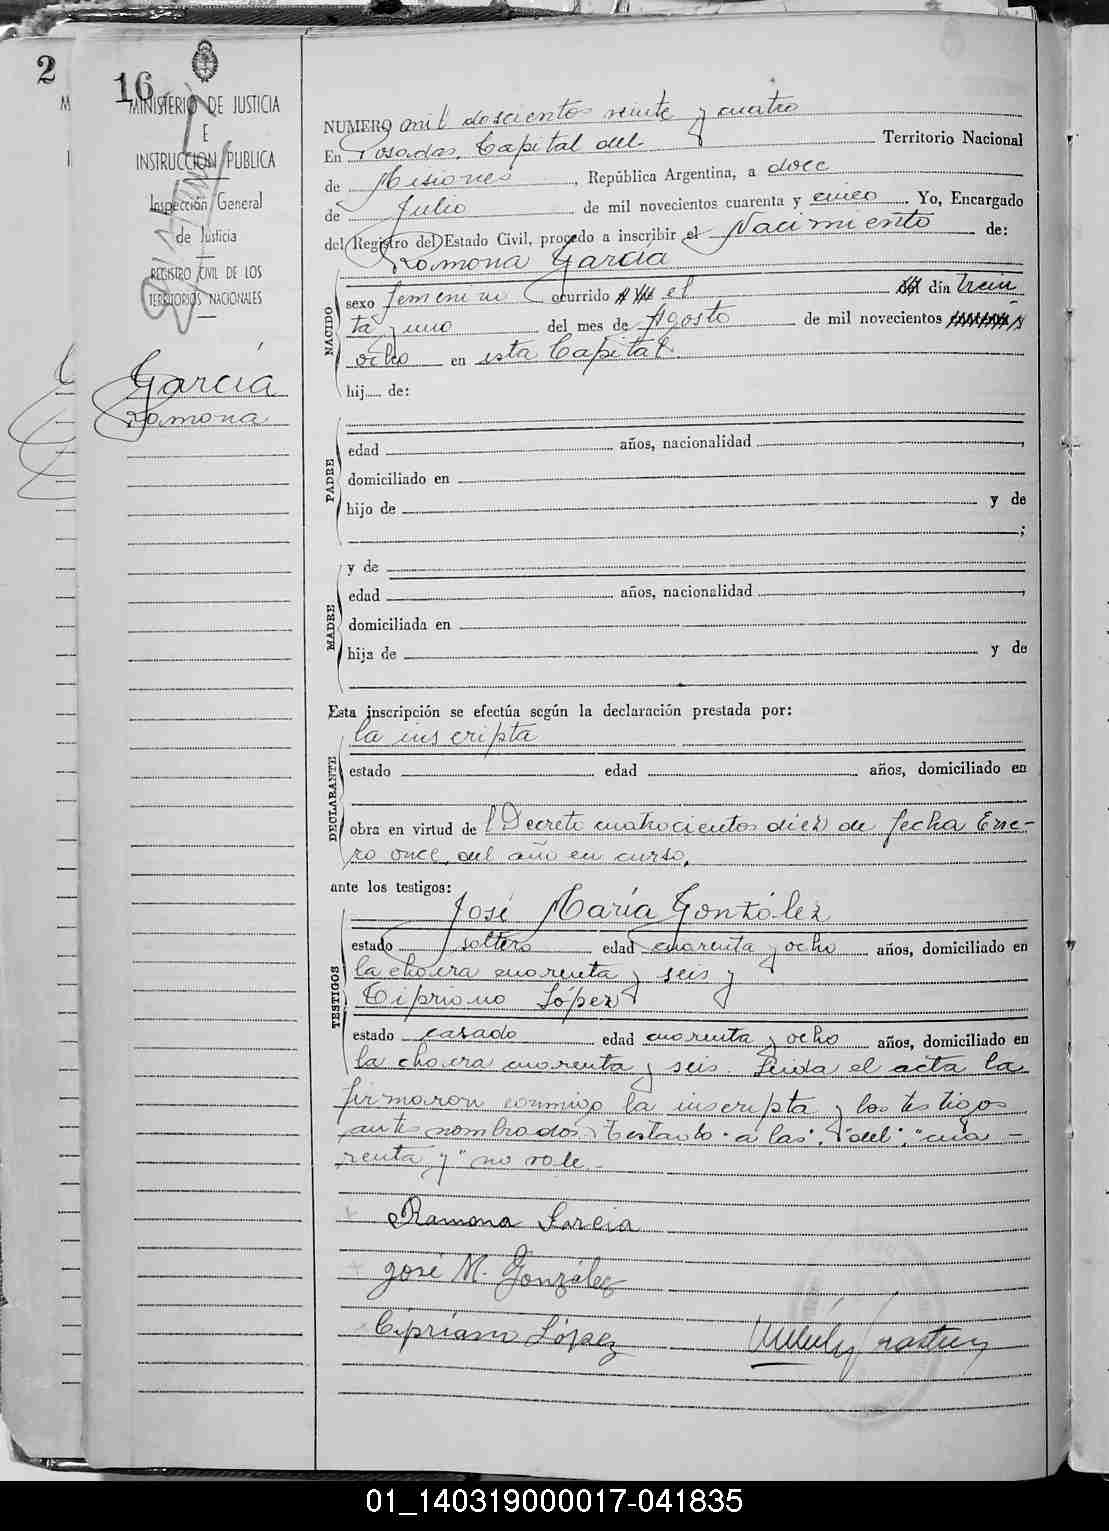 2
16
MINISTERIO DE JUSTICIA
E
INSTRUCCION PUBLICA
Inspección General
de Justicia
REGISTRO CIVIL DE LOS
TERRITORIOS NACIONALES
García
Ramona
NUMERO mil doscientos veinte y cuatro
En Posadas, Capital del Territorio Nacional
de Misiones, República Argentina, a doce
de Julio de mil novecientos cuarenta y cinco. Yo, Encargado
del Registro del Estado Civil, procedo a inscribir el Nacimiento de:
Ramona García
NACIDO
sexo femenino ocurrido el día trein
ta y uno del mes de Agosto de mil novecientos
ocho en esta Capital.
hij..... de:
PADRE
edad años, nacionalidad ,
domiciliado en
hijo de y de
;
MADRE
y de
edad años, nacionalidad ,
domiciliada en
hija de y de
Esta inscripción se efectúa según la declaración prestada por:
DECLARANTE
la inscripta
estado edad años, domiciliado en
obra en virtud del Decreto cuatrocientos diez de fecha Ene-
ro once del año en curso,
ante los testigos:
TESTIGOS
José María González
estado soltero edad cuarenta y ocho años, domiciliado en
la chacra cuarenta y seis y
Cipriano López
estado casado edad cuarenta y ocho años, domiciliado en
la chacra cuarenta y seis. Leida el acta la
firmaron conmigo la inscripta y los testigos
antes nombrados. Testado "a las", "del", "cua-
renta y" no vale.
Ramona Garcia
José M. González
Cipriano López
01_140319000017-041835